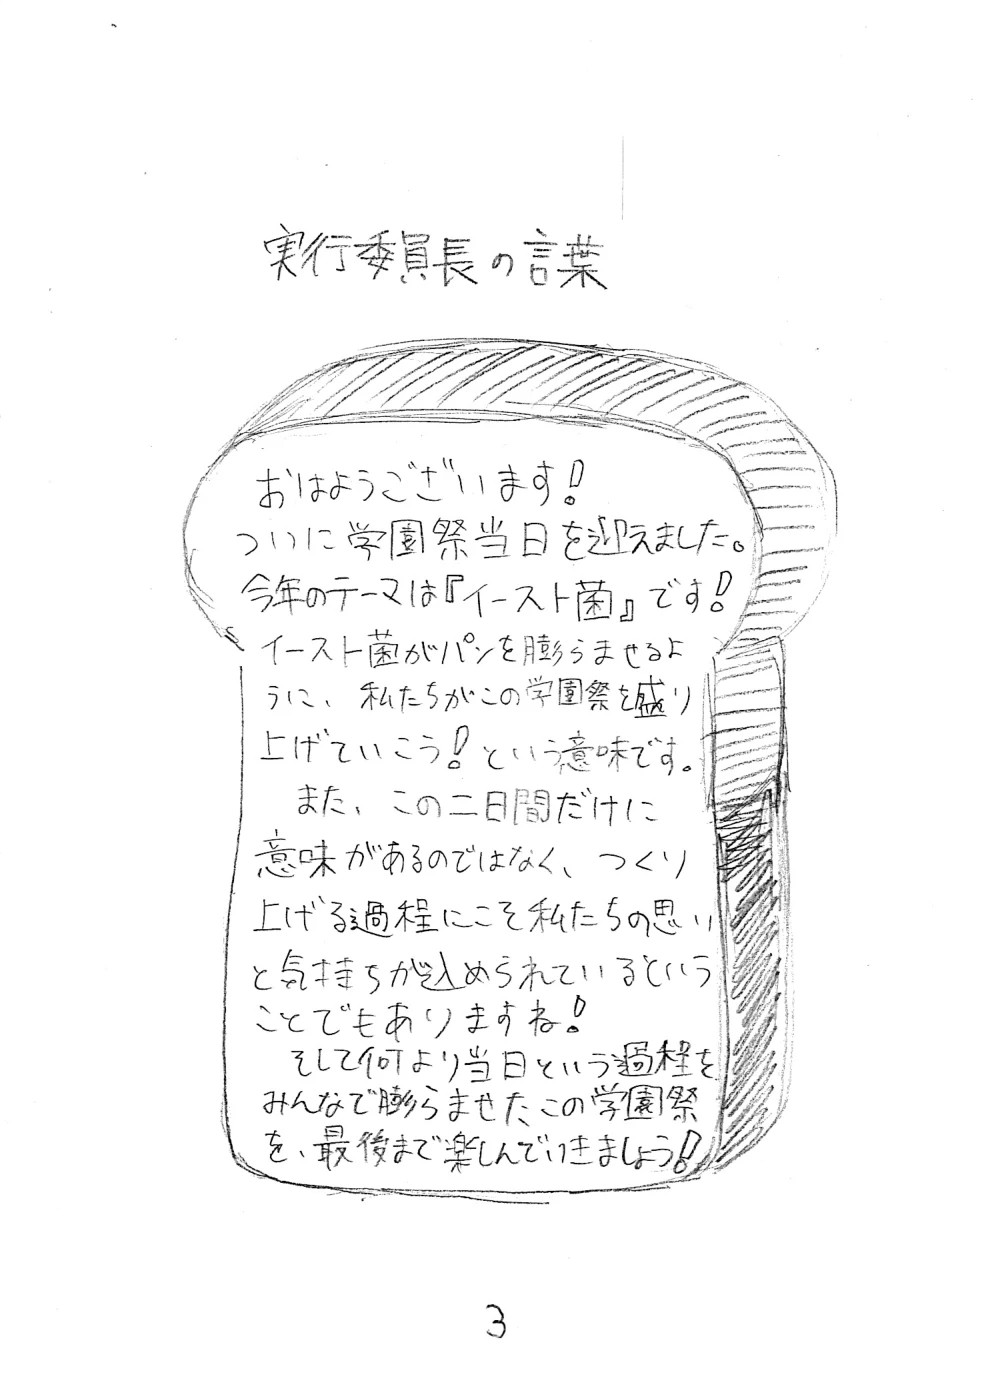 実行委員長の言葉
おはようございます!
ついに学園祭当日を迎えました。
今年のテーマは『イースト菌』です!
イースト菌がパンを膨らませるよ
うに、私たちがこの学園祭を盛り
上げていこう!という意味です。
また、この二日間だけに
意味があるのではなく、つくり
上げる過程にこそ私たちの思い
と気持ちが込められているという
ことでもありますね!
そして何より当日という過程を
みんなで膨らませた、この学園祭
を、最後まで楽しんでいきましょう!
3